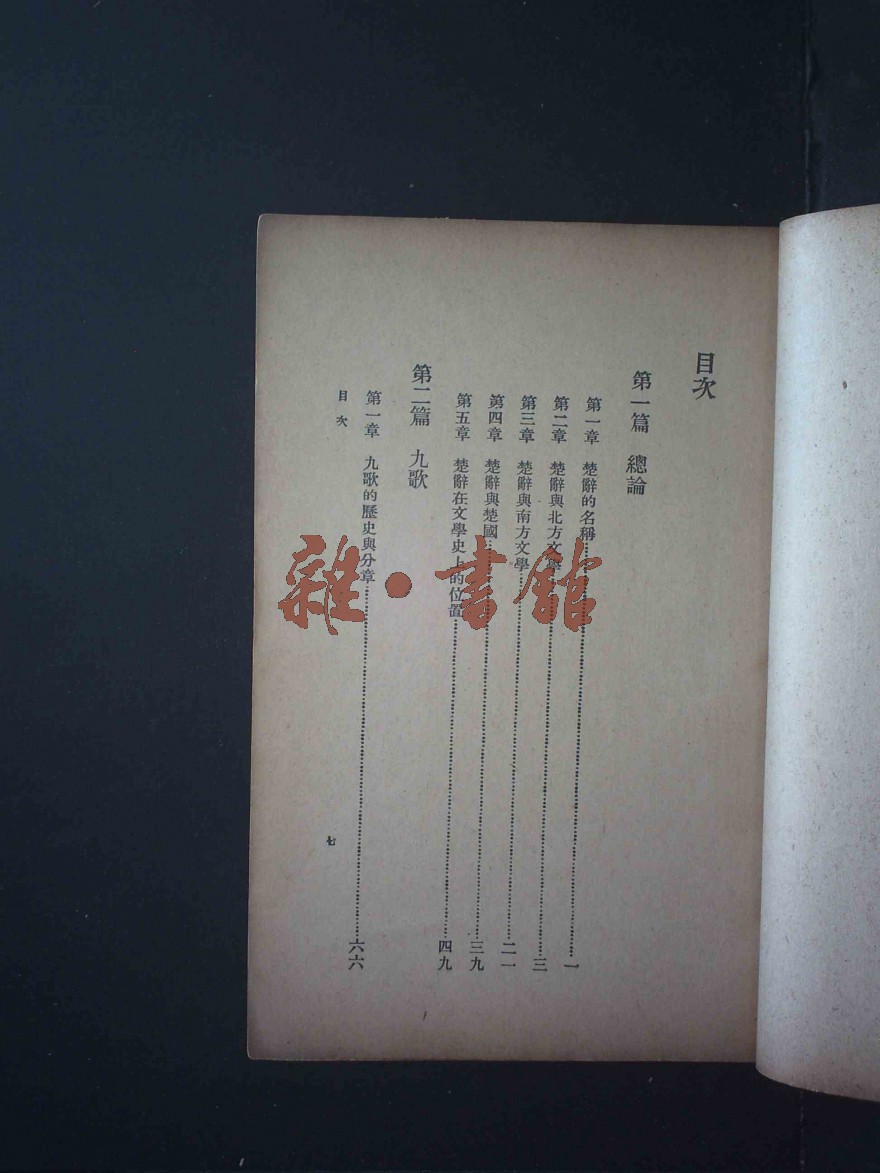 目次
第一篇 總論
第一章 楚辭的名稱……一
第二章 楚辭與北方文學……三
第三章 楚辭與南方文學……二一
第四章 楚辭與楚國……三九
第五章 楚辭在文學史上的位置……四九
第二篇 九歌
第一章 九歌的歷史與分章……六六
目次
七
雜·書館